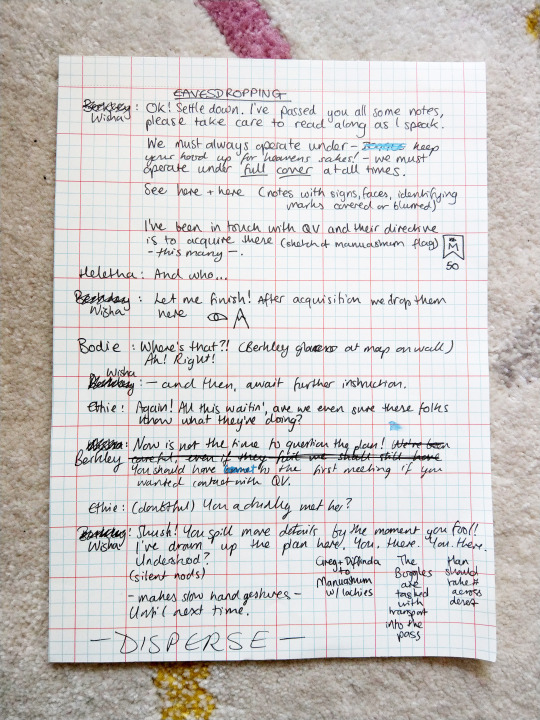 EAVESDROPPING
Berkley: OK! Settle down. I've passed you all some notes,
Wisha please take care to read along as I speak.
We must always operate under - keep
your hood up for heavens sakes! - we must
operate under full cover at all times.
See here + here (notes with signs, faces, identifying
marks covered or blurred)
I've been in touch with QV and their directive
is to acquire these (sketch of manuashum flag)
- this many -.
M
50
Heletha: And who...
Berkley: Let me finish! After acquisition we drop them
Wisha here
A
Bodie: Where's that?! (Berkley glances at map on wall)
Ah! Right!
Wisha
Berkley: - and then, await further instruction.
Ethie: Again! All this waitin', are we even sure these folks
know what they're doing?
Wisha: Now is not the time to question the plan! We've been
Berkley careful, even if they fail we shall still have
You should have in the first meeting if you
wanted contact with QV.
Ethie: (doubtful) You actually met her?
Berkley: Shush! You spill more details by the moment you fool!
Wisha I've drawn up the plan here. You. there. You. there.
Undeshod?
(silent nods)
- makes slow hand gestures -
Until next time.
Greg + Diffinda
to
Manuashum
w/ lachies
The
Boggles
are
tasked
with
transport
into the
pass
Han
should
take #
across
desert
- DISPERSE -